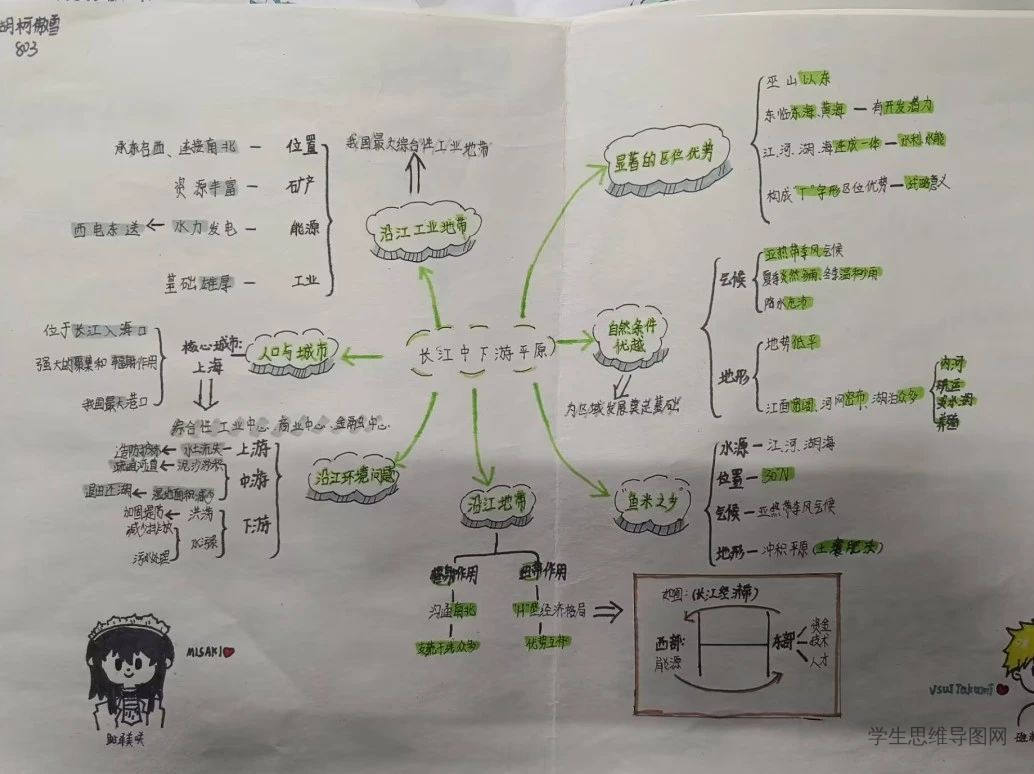 胡柯傲雪
803
长江中下游平原
显著的区位优势
巫山以东
东临东海、黄海 — 有开发潜力
江、河、湖、海连成一体 — 水利水能
构成"T"字形区位优势 — 战略意义
自然条件
优越
为区域发展奠定基础
气候
亚热带季风气候
夏季炎热多雨、冬季温和少雨
降水充沛
地形
地势低平
江面宽阔、河网密布、湖泊众多
内河
航运
淡水湖
养殖
"鱼米之乡"
水源 — 江、河、湖海
位置 — 30°N
气候 — 亚热带季风气候
地形 — 冲积平原(土壤肥沃)
沿江地带
辐射作用
沟通南北
支流干线众多
纽带作用
"H"型经济格局
优势互补
如图:(长江经济带)
西部:
能源
东部
资金
技术
人才
沿江环境问题
上游
水土流失
造防护林
中游
泥沙淤积
疏通河道
湿地面积减少
退田还湖
下游
洪涝
加固堤防
水污染
减少排放
污水处理
人口与城市
核心城市:
上海
位于长江入海口
强大的聚集和辐射作用
我国最大港口
综合性工业中心、商业中心、金融中心
沿江工业地带
我国最大综合性工业地带
位置 — 承东启西、连接南北
矿产 — 资源丰富
能源 — 水力发电 ← 西电东送
工业 — 基础雄厚
MISAKI
Usui Takumi
学生思维导图网